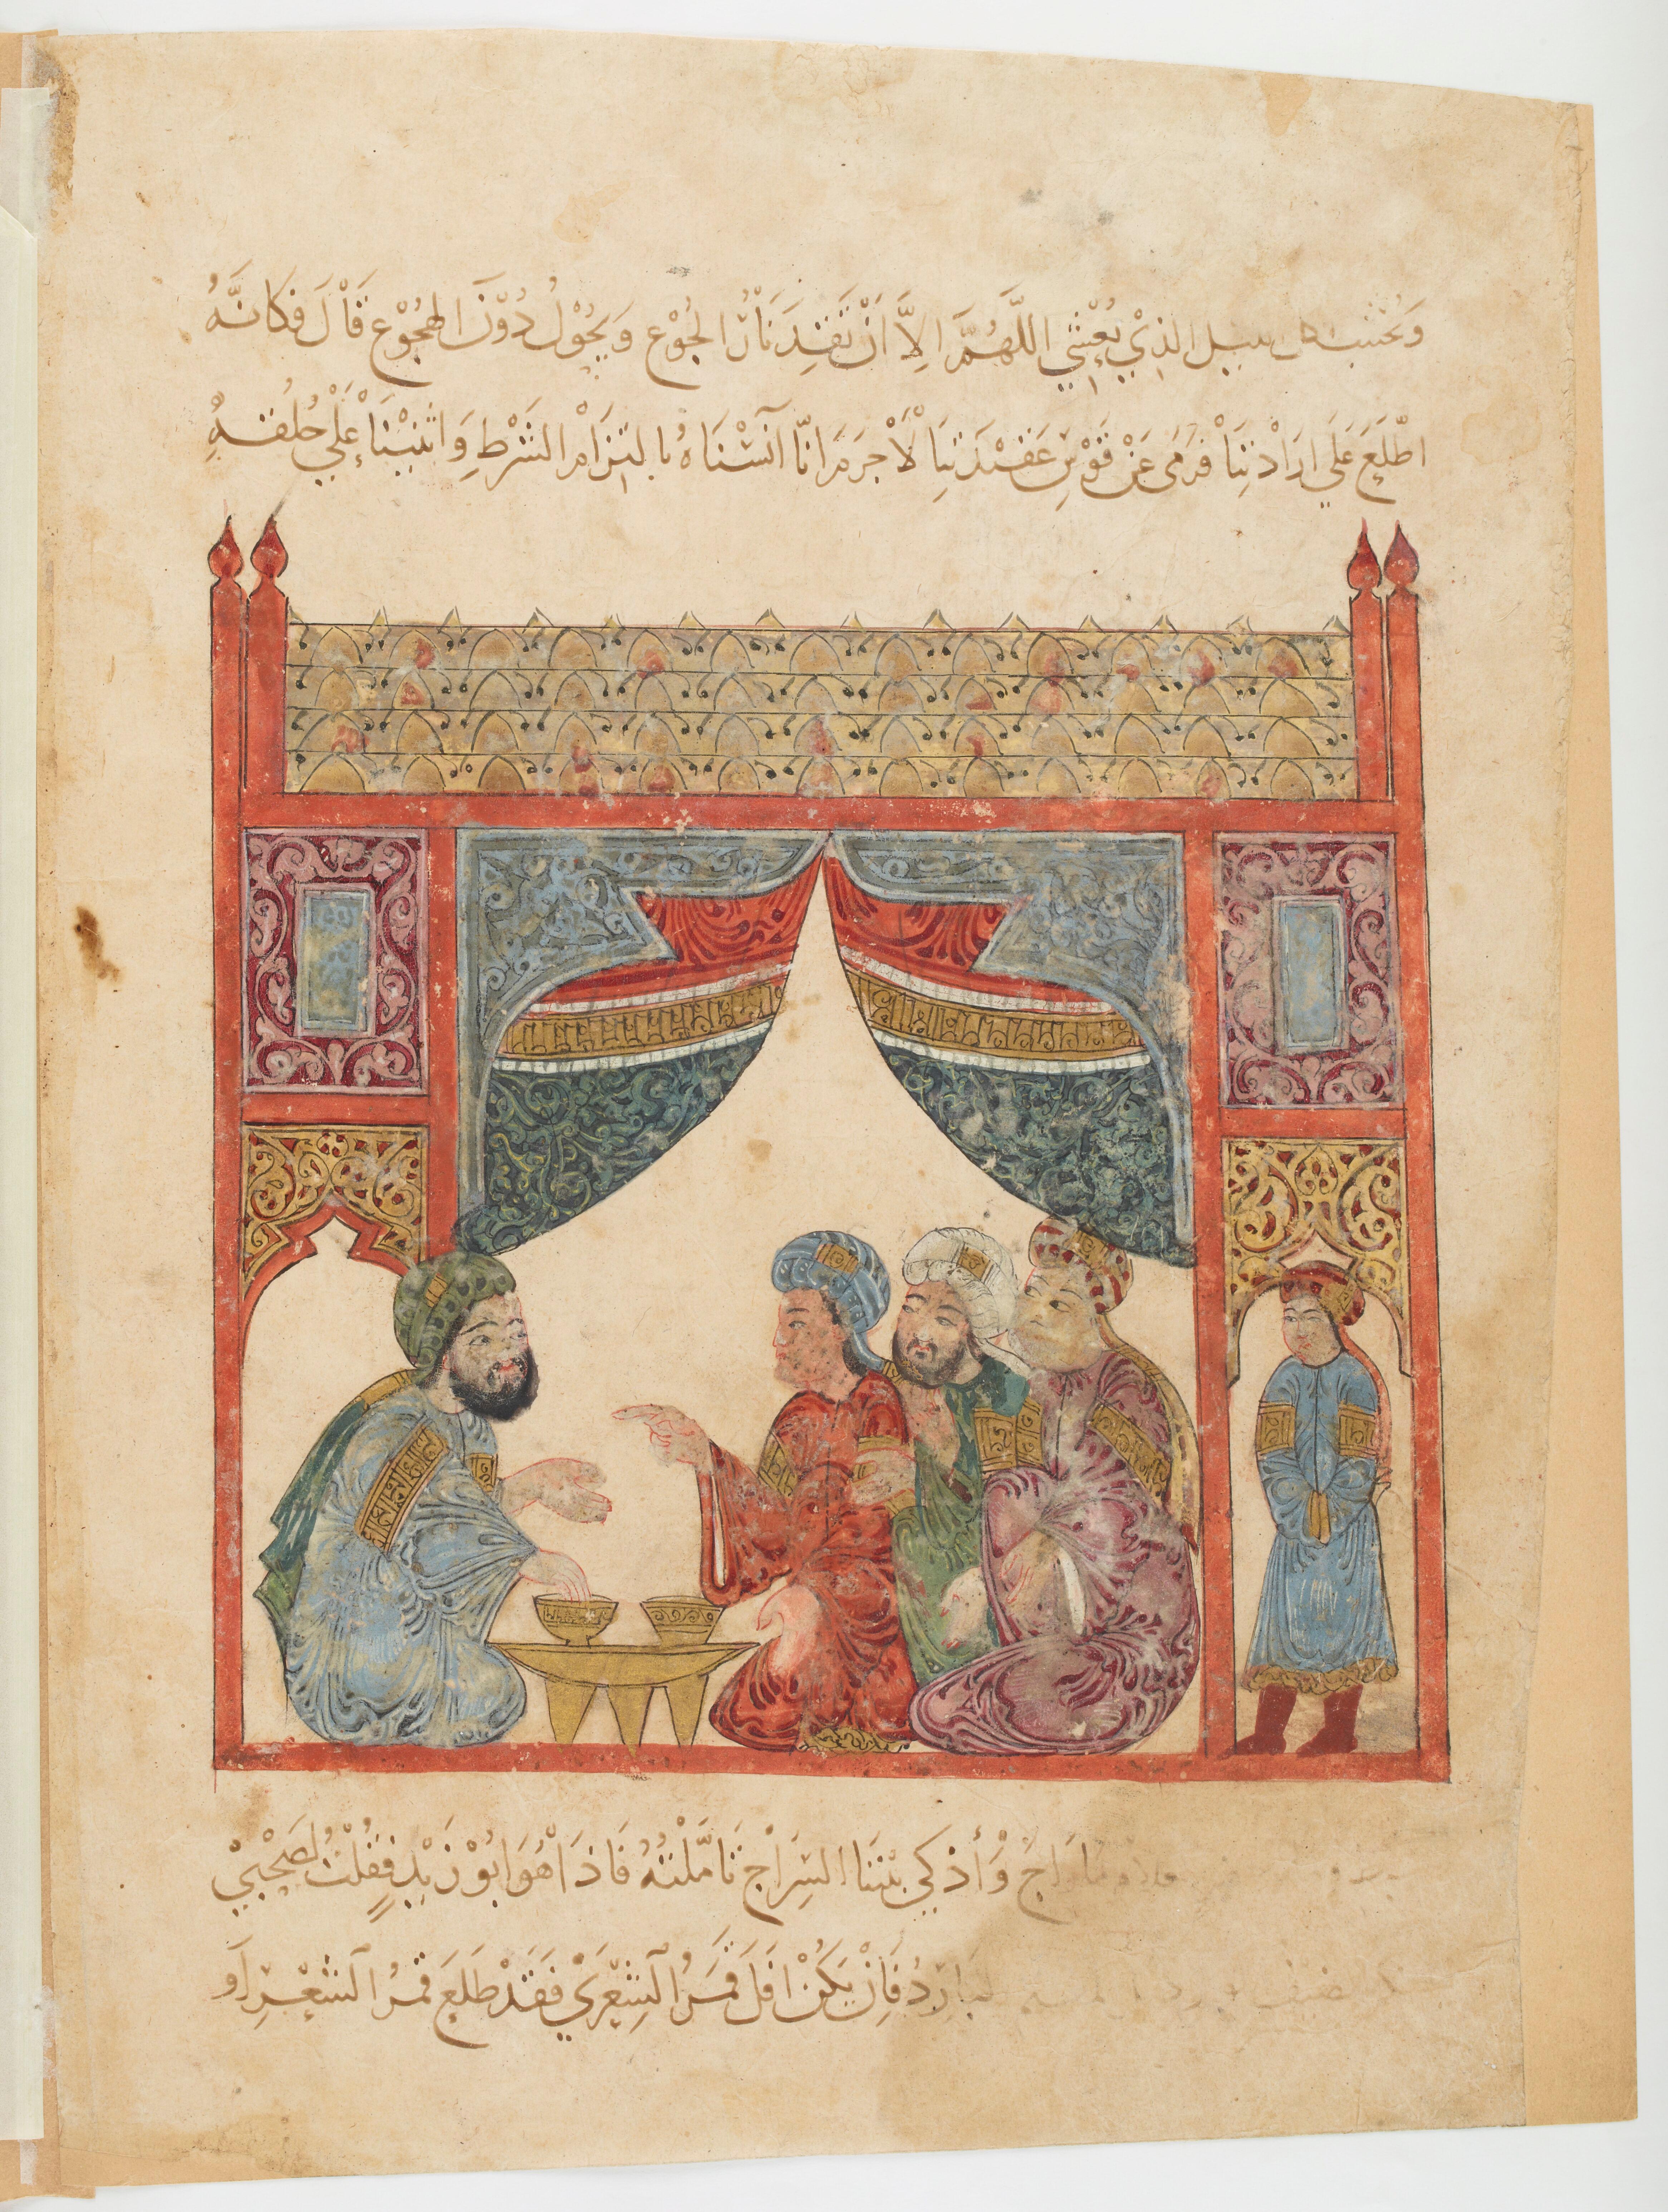 ويجتنب اللذي يعشي اللهم الا ان تقد نار الجوع ويحول دون الهجوع قال فكانه
اطلع على ارادتنا فرمى عن قوس عقيدتنا لا جرم انا آنسناه بالتزام الشرط واثنينا على خلقه
ما راج وأذكي بيننا السراج تاملته فاذا هو ابو زيد فقلت لصحبي
الضيف البارد فان يكن افل قمر الشعرى فقد طلع قمر الشعر او